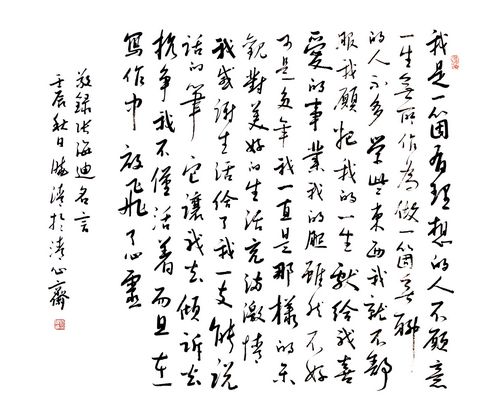 我是一箇有理想的人不願意
一生無所作為做一箇無聊
的人不多學些東西我就不舒
服我願把我的一生獻給我喜
愛的事業我的腿雖然不好
可是多年我一直是那樣的樂
觀對美好的生活充滿激情
我感謝生活給了我一支能說
話的筆它讓我去傾訴去
抗爭我不僅活着而且在
寫作中放飛了心靈
敬録張海迪名言
壬辰秋日於清心齋